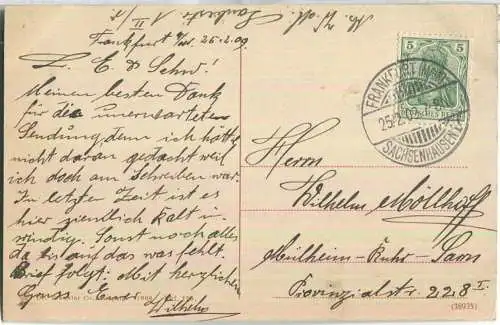 Frankfurt a/M. 25.2.09.
L. E. & Schw!
Meinen besten Dank
für die unerwarteten
Sendung, denn ich hätte
nicht daran gedacht weil
ich doch am Schreiben war.
In letzter Zeit ist es
hier ziemlich kalt u.
windig. Sonst noch alles
da bis auf das was fehlt.
Brief folgt. Mit herzlichem
Gruss Euer Wilhelm
5 5
FRANKFURT (MAIN)
25.2.09
SACHSENHAUSEN
Herrn
Wilhelm Möllhoff
Mülheim-Ruhr-Saarn
Provinzialstr. 228 I.
(18935)